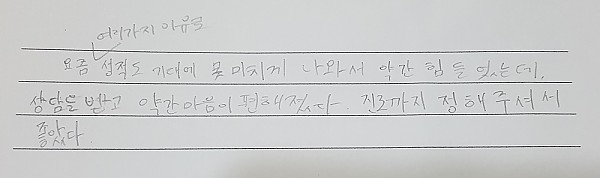 여러가지 이유로
요즘 성적도 기대에 못 미치게 나와서 약간 힘들었는데,
상담을 받고 약간 마음이 편해졌다. 진로까지 정해 주셔서
좋았다.